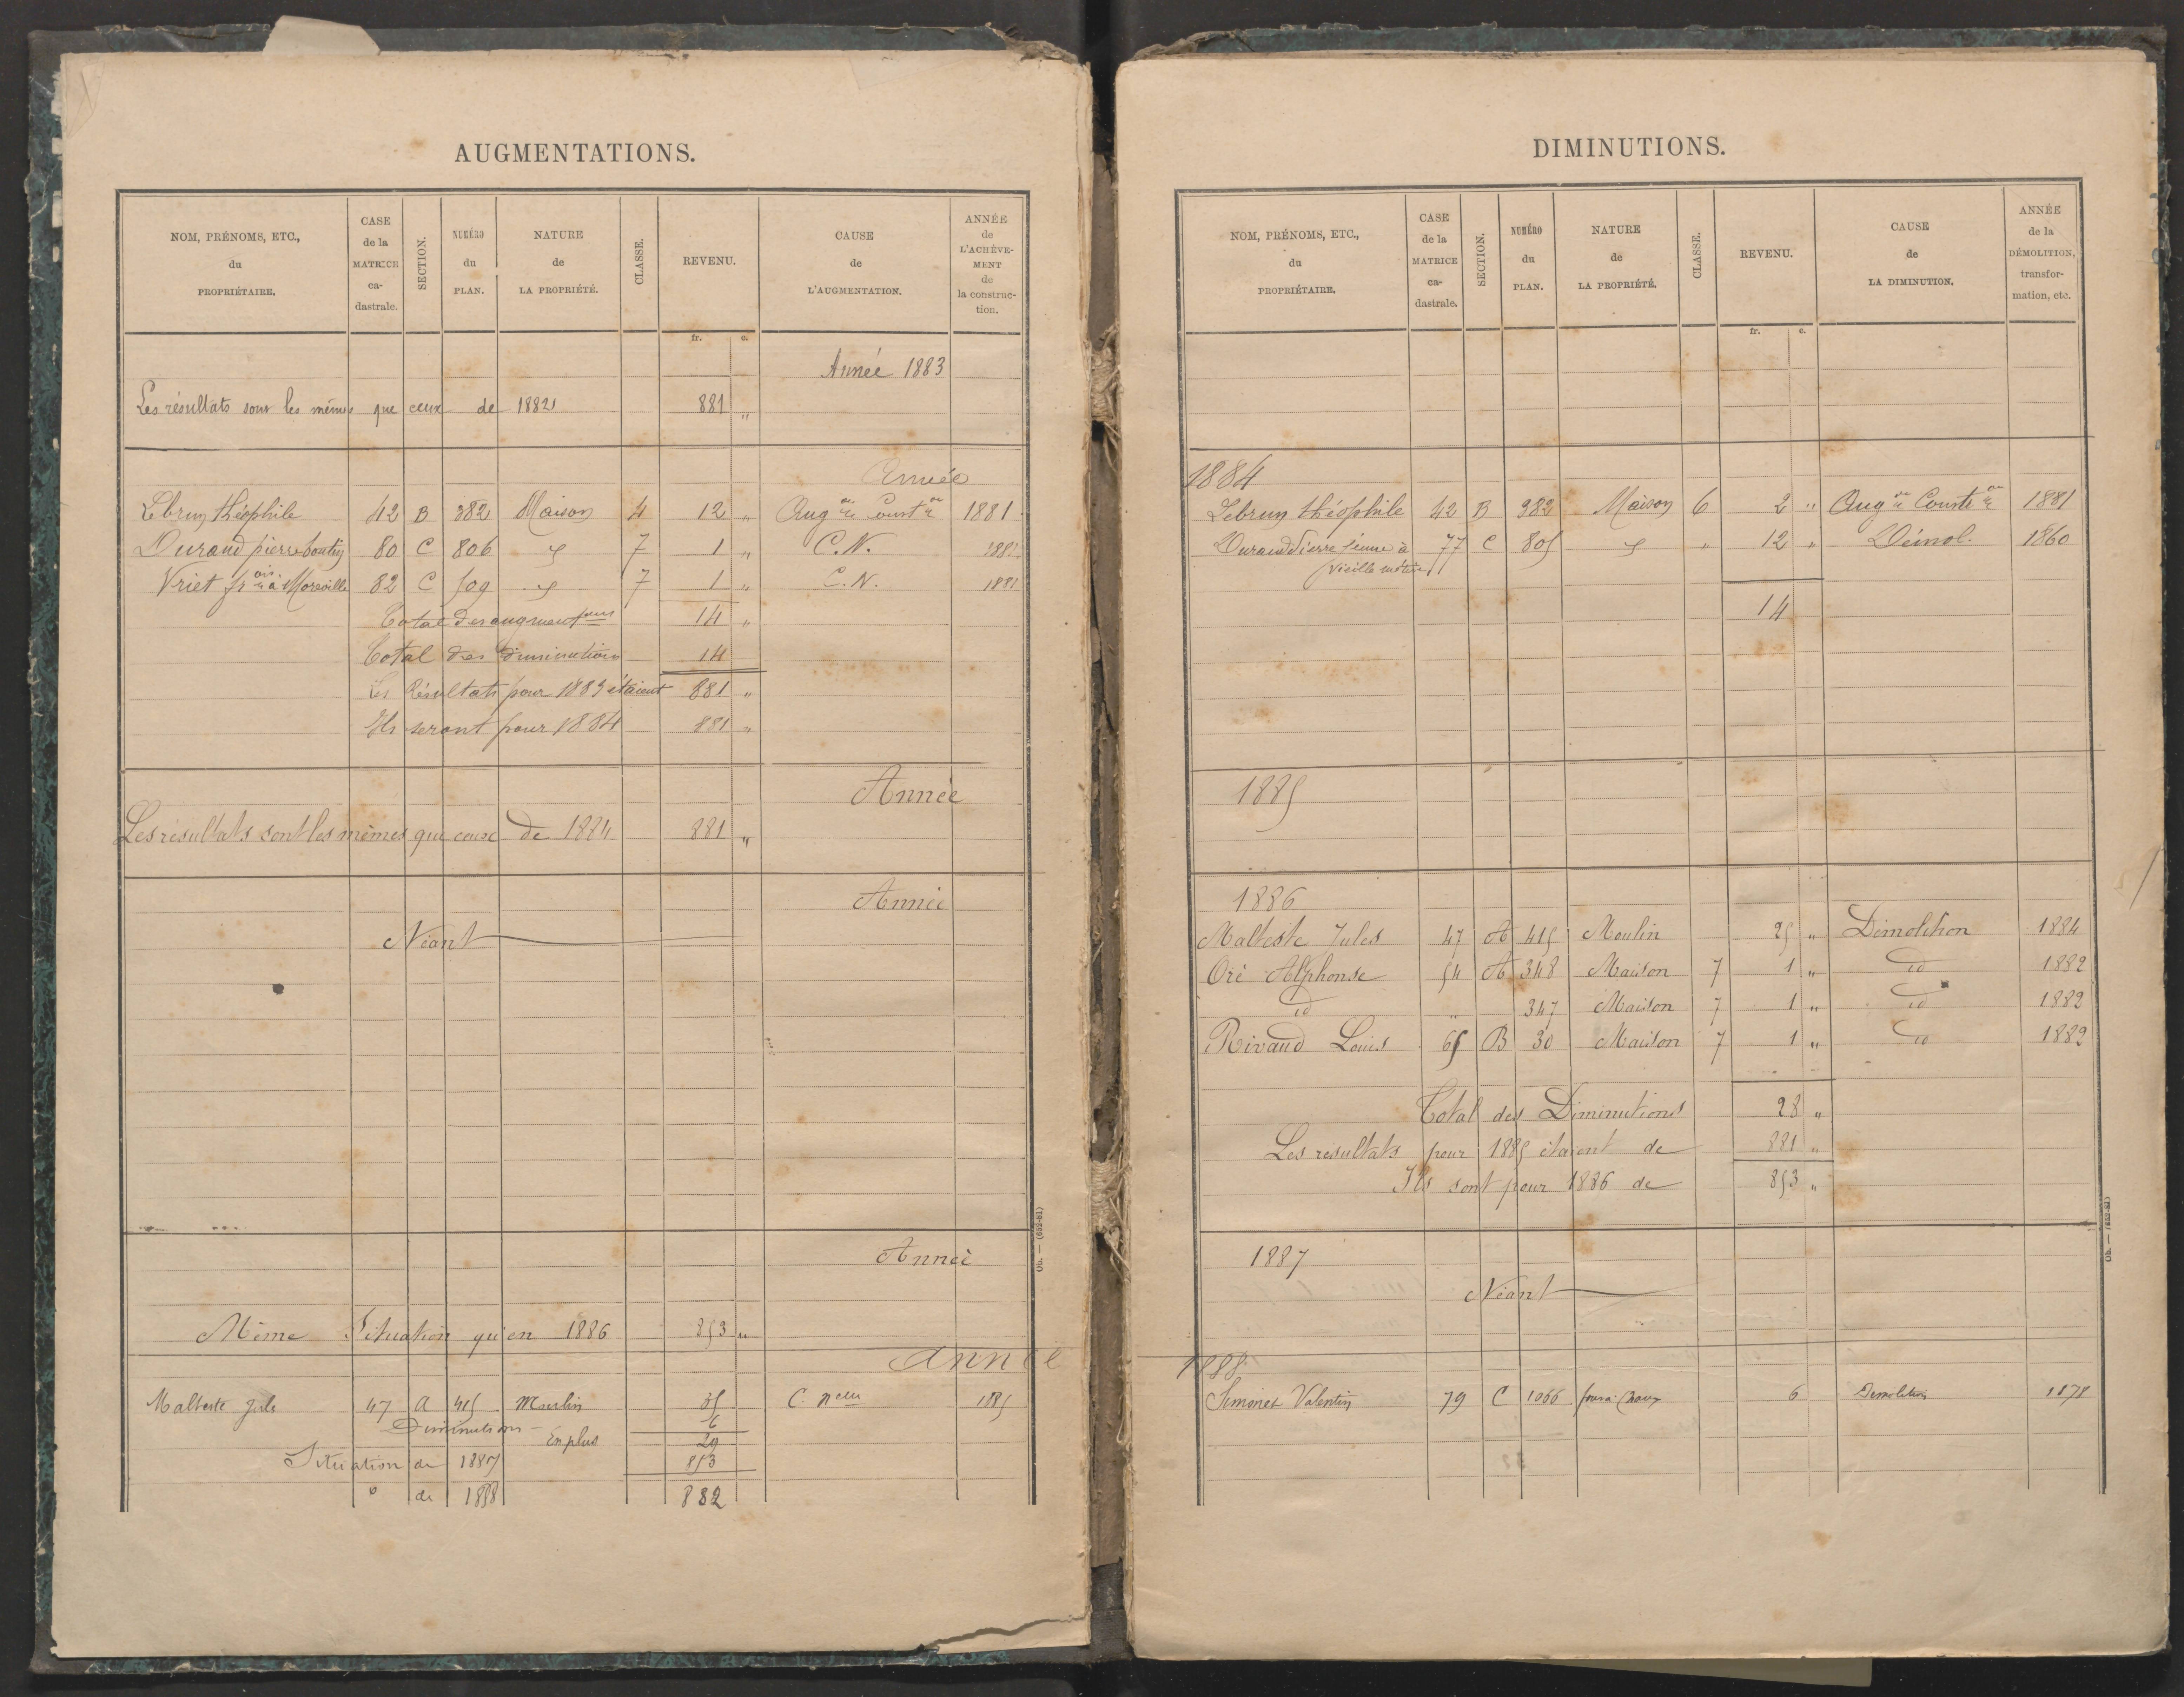 AUGMENTATIONS.
NOM, PRÉNOMS, ETC., du PROPRIÉTAIRE.
CASE de la MATRICE ca-dastrale.
SECTION.
NUMÉRO du PLAN.
NATURE de LA PROPRIÉTÉ.
CLASSE.
REVENU.
CAUSE de L'AUGMENTATION.
ANNÉE de L'ACHÈVE-MENT de la construc-tion.
fr. c.
Année 1883
Les résultats sont les mêmes que ceux de 1882 881 "
Année
Lebrun théophile 42 B 382 Maison 4 12 " Aug on Const on 1881
Durand pierre 80 C 806 7 1 " C.N. 1882
Vriet fr ois à Moreville 82 C 509 7 1 " C.N. 1881
Total des augment ions 14 "
Total des diminutions 14
Les Résultats pour 1883 étaient 881 "
Ils seront pour 1884 881 "
Année
Les résultats sont les mêmes que ceux de 1884 881 "
Année
Néant
Année
Même Situation qu'en 1886 853 "
Année
Malteste Jules 47 A 415 Moulin 35 C. nelle 1885
Diminutions 6
En plus 29
Situation de 1887 853
o de 1888 882
Ob. — (652-81)
DIMINUTIONS.
NOM, PRÉNOMS, ETC., du PROPRIÉTAIRE.
CASE de la MATRICE ca-dastrale.
SECTION.
NUMÉRO du PLAN.
NATURE de LA PROPRIÉTÉ.
CLASSE.
REVENU.
CAUSE de LA DIMINUTION.
ANNÉE de la DÉMOLITION, transfor-mation, etc.
fr. c.
1884
Lebrun théophile 42 B 382 Maison 6 2 " Aug on Const on 1881
Durand Pierre jeune à 77 C 805 " 12 " Démol. 1860
Vieille
14
1885
1886
Malteste Jules 47 A 415 Moulin 25 " Démolition 1884
Oré Alphonse 54 A 348 Maison 7 1 " id 1882
id " 347 Maison 7 1 " id 1882
Rivaud Louis 65 B 30 Maison 7 1 " id 1882
Total des Diminutions 28 "
Les résultats pour 1885 étaient de 881 "
Ils sont pour 1886 de 853 "
1887
Néant
1888
Simonet Valentin 79 C 1066 four à chaux 6 Démolition 1878
Ob. — (652-81)